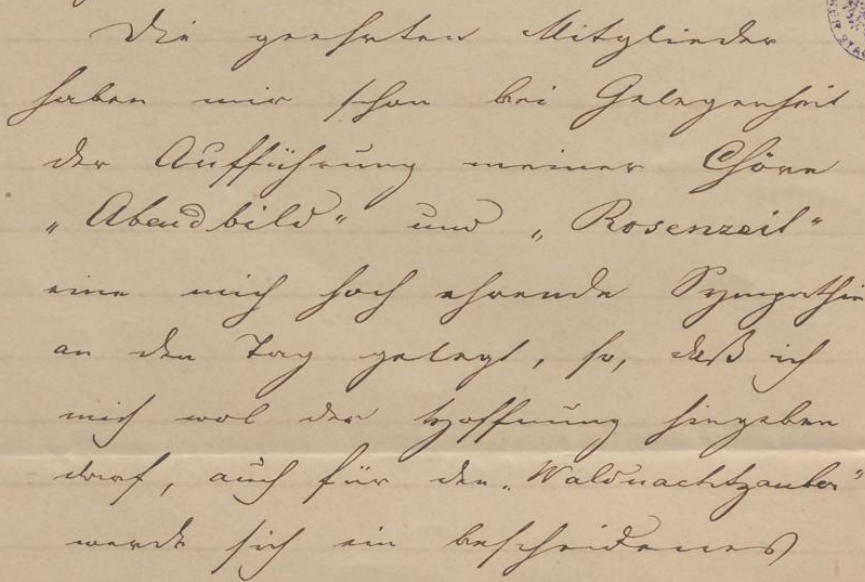 Die geehrten Mitglieder
haben mir schon bei Gelegenheit
der Aufführung meiner Chöre
„Abendbild“ und „Rosenzeit“
eine mich hoch ehrende Sympathie
an den Tag gelegt, so, daß ich
mich wol der Hoffnung hingeben
darf, auch für den „Waldnachtzauber“
werde sich ein bescheidenes